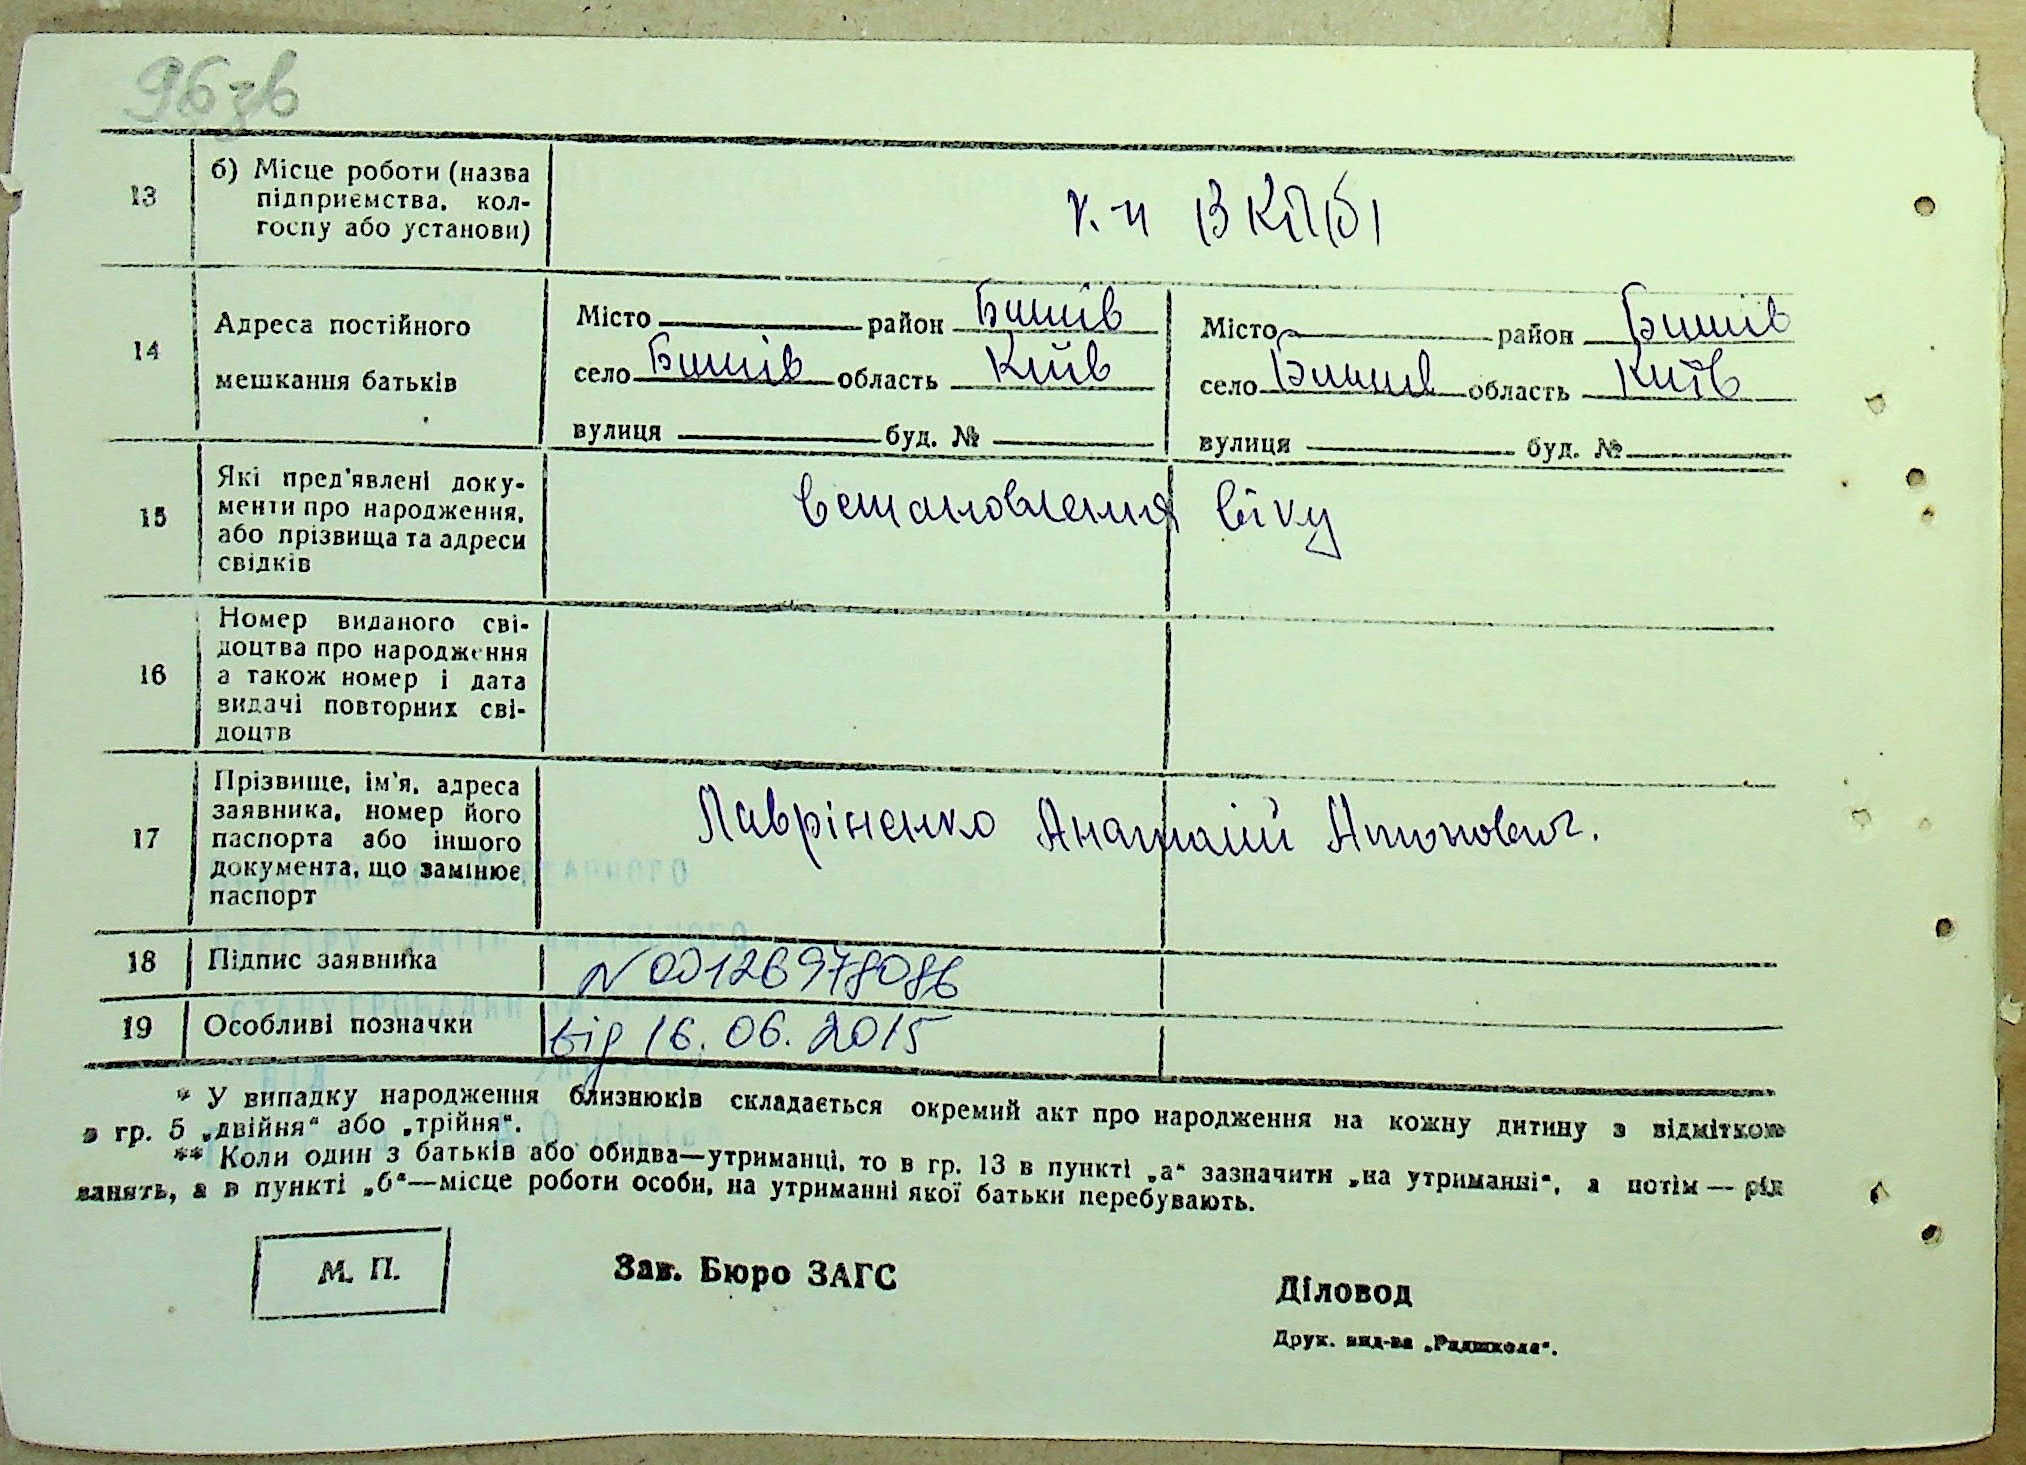 96 зв
13
б) Місце роботи (назва
підприємства, кол-
госпу або установи)
к-п ВКП(б)
14
Адреса постійного
мешкання батьків
Місто район Бишів
село Бишів область Київ
вулиця буд. №
Місто район Бишів
село Бишів область Київ
вулиця буд. №
15
Які пред'явлені доку-
менти про народження,
або прізвища та адреси
свідків
встановлення віку
16
Номер виданого сві-
доцтва про народження
а також номер і дата
видачі повторних сві-
доцтв
17
Прізвище, ім'я, адреса
заявника, номер його
паспорта або іншого
документа, що замінює
паспорт
Лавріненко Анатолій Антонович.
18
Підпис заявника
N 00126978086
19
Особливі позначки
від 16.06.2015
* У випадку народження близнюків складається окремий акт про народження на кожну дитину з відміткою
в гр. 5 „двійня“ або „трійня“.
** Коли один з батьків або обидва—утриманці, то в гр. 13 в пункті „а“ зазначити „на утриманні“, а потім — рід
занять, а в пункті „б“—місце роботи особи, на утриманні якої батьки перебувають.
М. П.
Зав. Бюро ЗАГС
Діловод
Друк. вид-ва „Радшкола“.